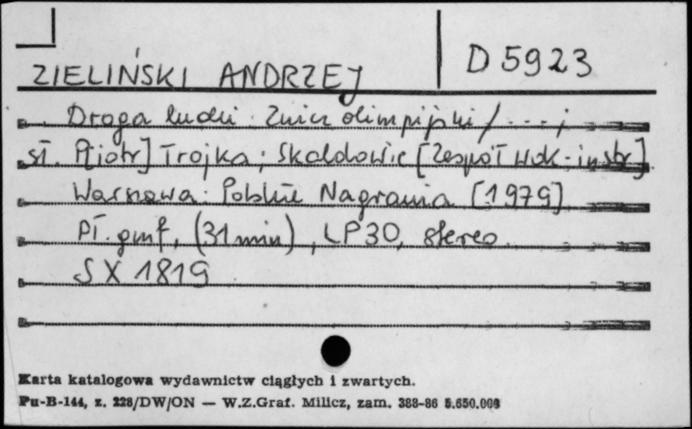 D 5923
ZIELIŃSKI ANDRZEJ
Droga ludzi : Znicz olimpijski / ... ;
sł. P[iotr] Trojka ; Skaldowie [Zespół wok-instr].
Warszawa : Polskie Nagrania [1979]
Pł. gmf, (31 min), LP30, stereo
SX 1819
Karta katalogowa wydawnictw ciągłych i zwartych.
Pu-B-144, z. 228/DW/ON — W.Z.Graf. Milicz, zam. 388-86 5.650.000